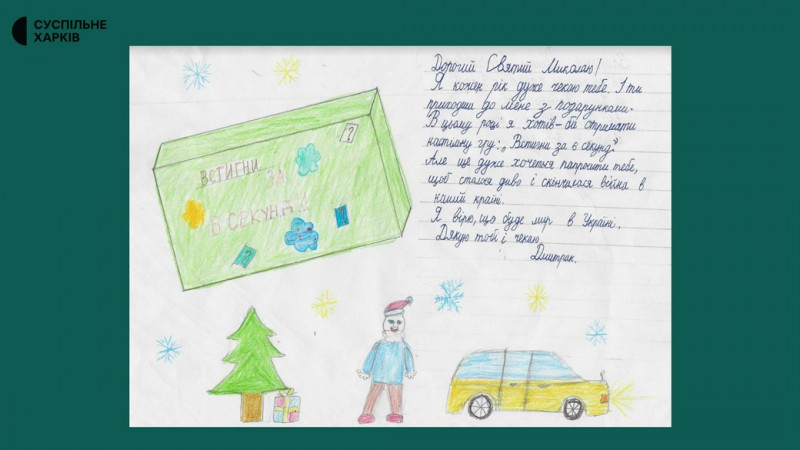 СУСПІЛЬНЕ
ХАРКІВ
Дорогий Святий Миколаю!
Я кожен рік дуже чекаю тебе. І ти
приходиш до мене з подарунками.
В цьому році я хотів-би отримати
настільну гру: „Встигни за 6 секунд".
Але ще дуже хочеться попросити тебе,
щоб сталося диво і скінчилася війна в
нашій країні.
Я вірю, що буде мир в Україні.
Дякую тобі і чекаю
Дмитрик.
ВСТИГНИ
ЗА
6 СЕКУНД!!
?
?